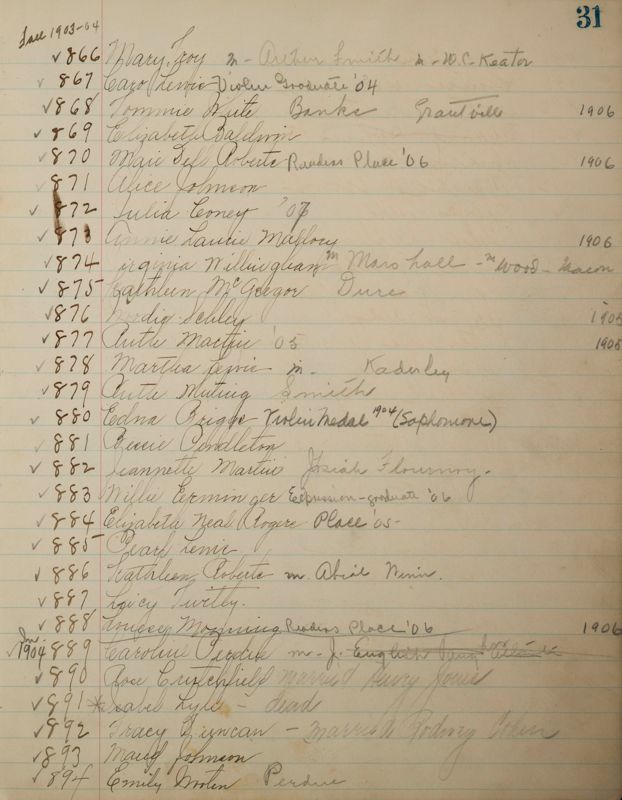 31
Fall 1903-04
✓866 Mary Troy m - Arthur Smith m - W.C. Keator
✓867 Caro Lewis Violin Graduate '04
✓868 Tommie Kite Banks Grantville 1906
✓869 Elizabeth Baldwin
✓870 Maie Dell Roberts Readers Place '06 1906
✓871 Alice Johnson
✓872 Julia Coney '07
✓873 Annie Laurie Mallory 1906
✓874 Virginia Willingham m Marshall - m Wood - Macon
✓875 Kathleen McGregor Dure
✓876 Schley 1905
✓877 Ruth Martin '05 1905
✓878 Martha Lewis m - Kaderley
✓879 Ruth Smith
✓880 Edna Briggs Violin Medal 1904 (Sophomore)
✓881 Bessie Pendleton
✓882 Jeannette Martin Josiah Flournoy.
✓883 Willie Erminger Expression - graduate '06
✓884 Elizabeth Neal Rogers Place '05 -
✓885 Pearl Lewis
✓886 Kathleen Roberts m. Abial Winn.
✓887 Loicy Turtley.
✓888 Morning Readers Place '06 1906
✓ Jan 1904 889 Caroline Perdue m - J. English
✓890 Rose Crutchfield married Henry Jones
✓891 * Isabel Lyle - dead
✓892 Tracy Duncan - Married Rodney Cohen
✓893 Maud Johnson
✓894 Emily Perdue